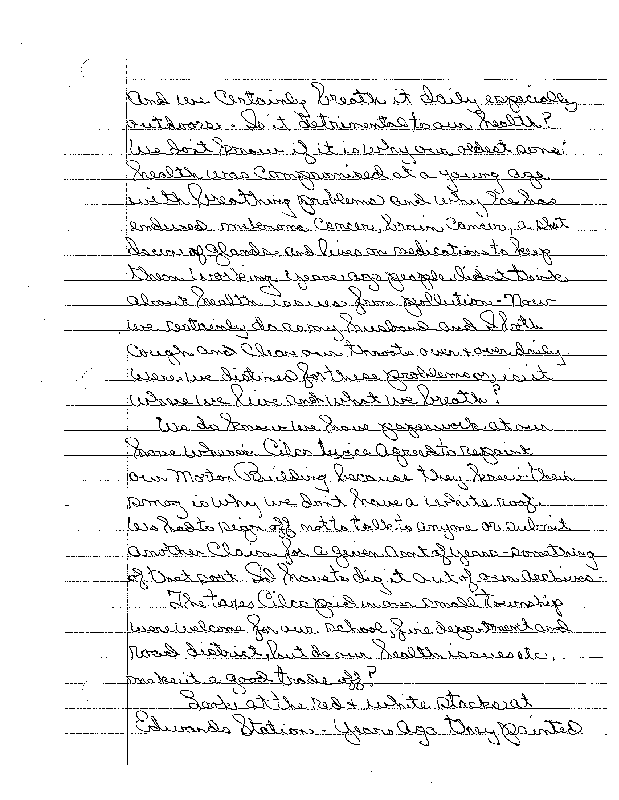 And we certainly breath it daily especially
outdoors. Is it detrimental to our health?
We don't know if it is why our oldest sons'
health was compromised at a young age
with breathing problems and why he has
endured melenoma cancer, brain cancer, a shut
down of glands and lives on medications to keep
them working. Years ago people didn't think
about health issues from pollution - Now
we certainly do as my husband and I both
cough and clear our throats over & over daily.
Were we distined for these problems or is it
where we live and what we breath?
We do know we have paperwork at our
home wherein Cilco twice agreed to repaint
our Morton Building because they knew their
smog is why we don't have a white roof.
We had to sign off not to talk to anyone or submit
another claim for a given amt of years - something
of that sort. I'd have to dig it out of our archives.
The taxes Cilco paid in our small township
were welcome for our school, fire department and
road district, but do our health issues etc.
make it a good trade off?
Look at the red & white stacks at
Edwards Station - Years ago they painted